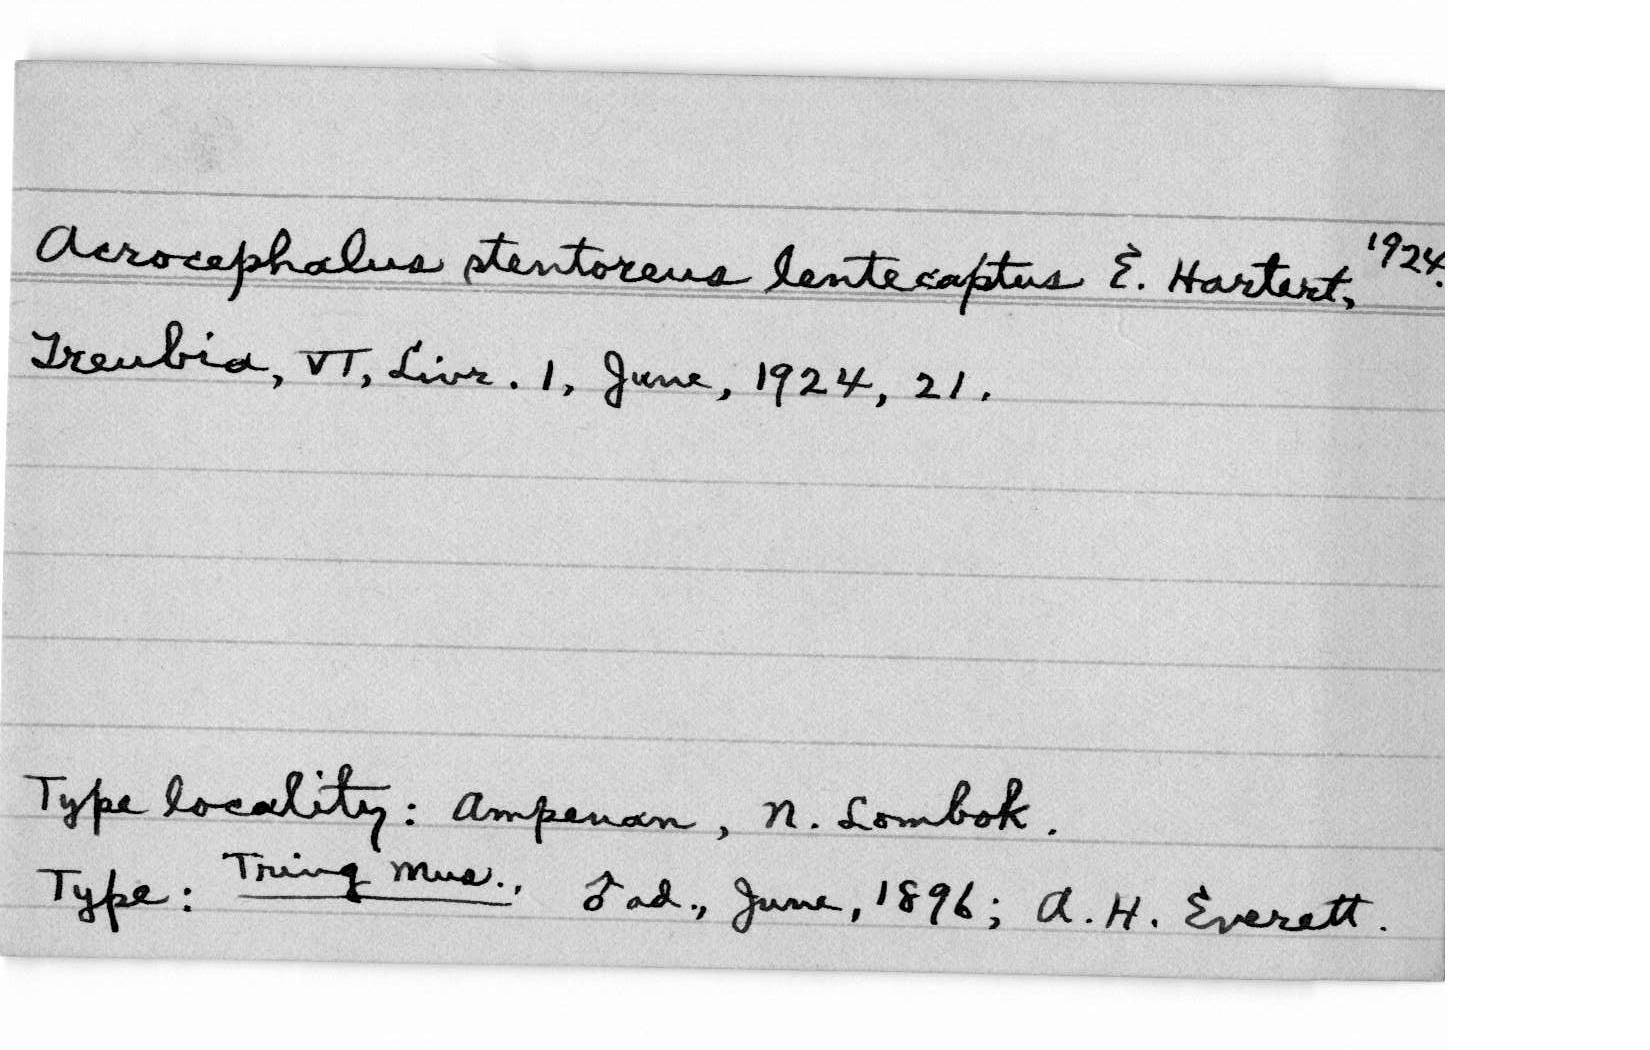 Acrocephalus stentoreus lentecaptus E. Hartert, 1924.
Treubia, VI, Livr. 1, June, 1924, 21.
Type locality: Ampenan, N. Lombok.
Type: Tring Mus., ♂ ad., June, 1896; A. H. Everett.